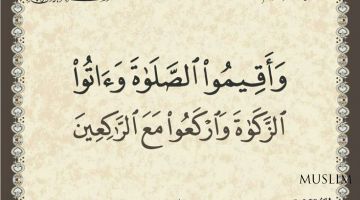 وَأَقِيمُوا۟ ٱلصَّلَوٰةَ وَءَاتُوا۟
ٱلزَّكَوٰةَ وَٱرْكَعُوا۟ مَعَ ٱلرَّٰكِعِينَ
MUSLIM